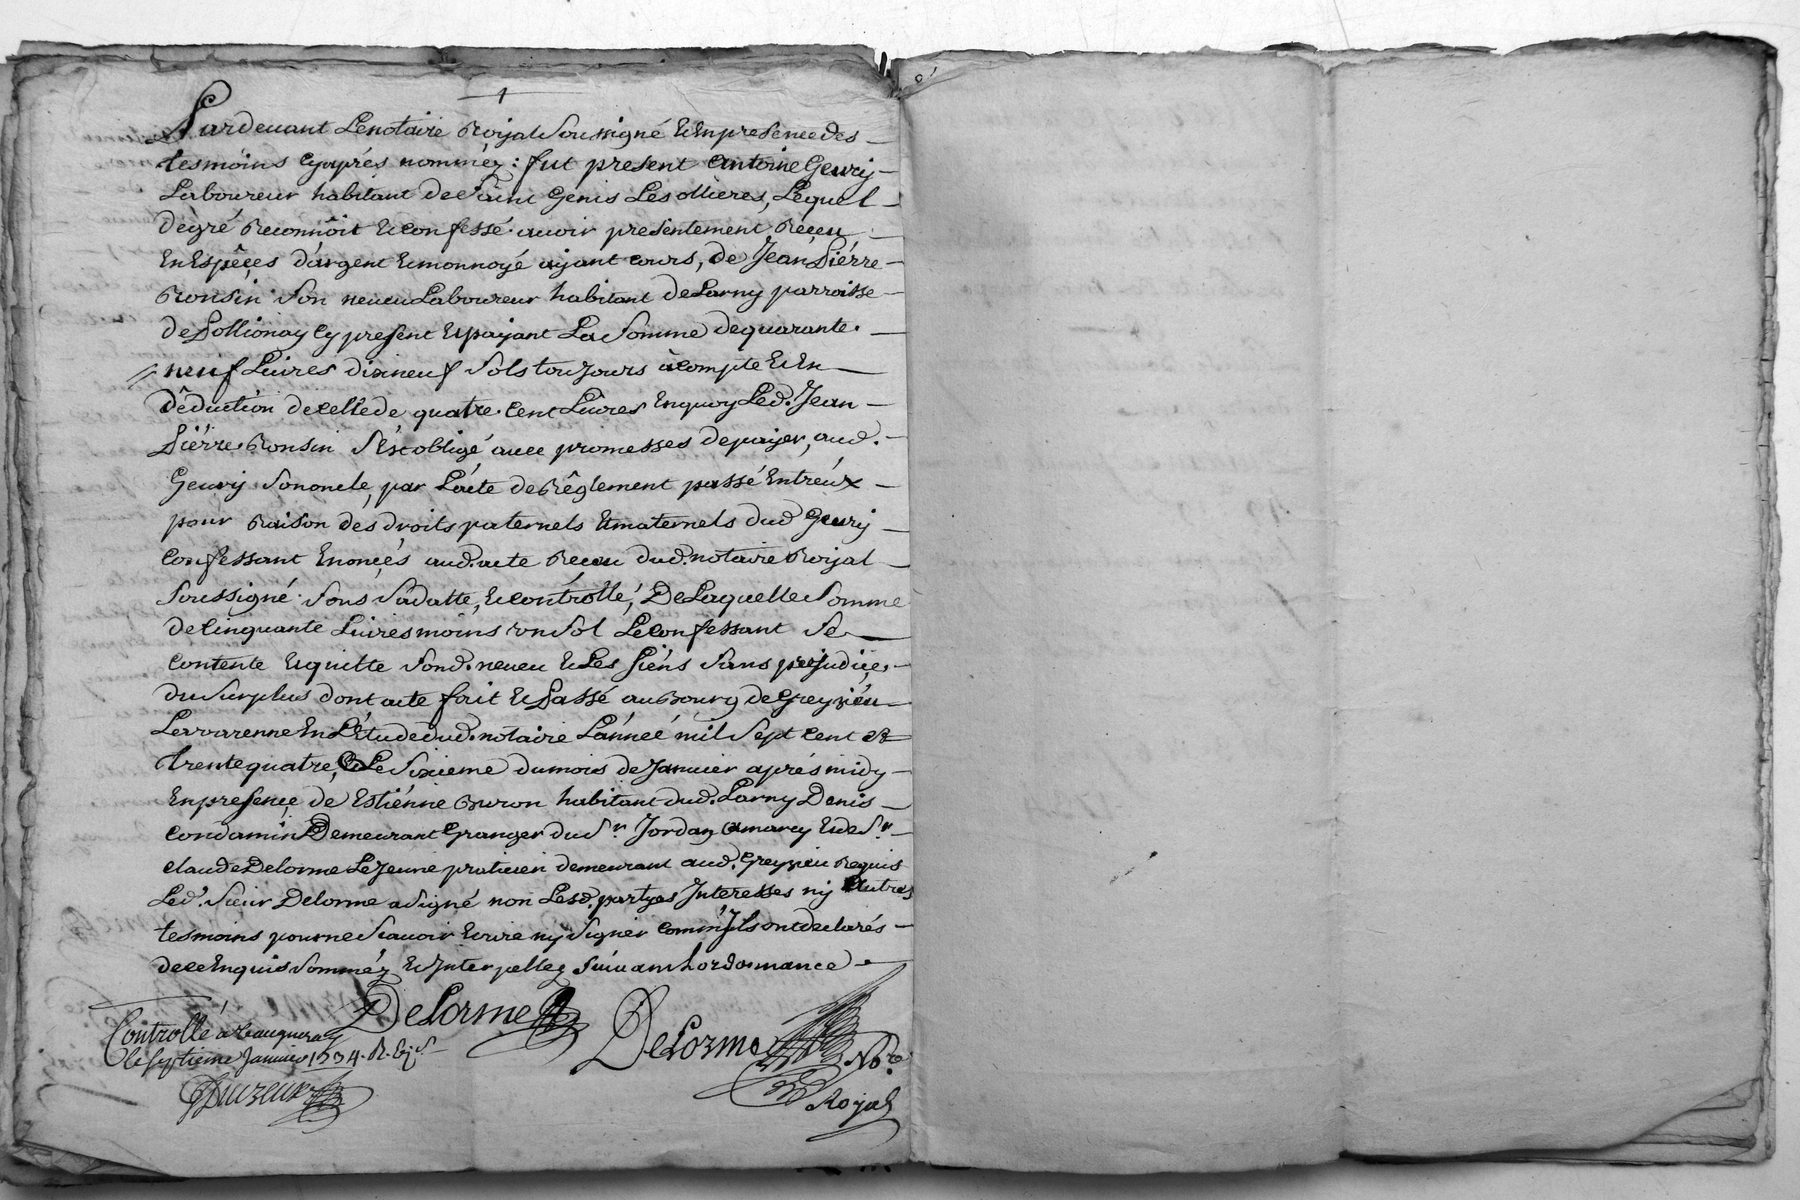 Pardeuant Lenotaire Roijal Soussigné Et En presence des
tesmoins cyaprés nomméz : fut present Antoine Geurij
Laboureur habitant de Saint Genis Les ollieres, Lequel
de gré Reconnoit Et confessé auoir presentement Reçeu
En Espêçes d'argent Et monnoyé aijant cours, de Jean Piérre
Ronsin Son neueu Laboureur habitant de Larny parroisse
de Pollionay cy present Et païjant La Somme de quarante
neuf Liures dixneuf Sols toujours àcompte Et En
déduction de celle de quatre cent Liures En quoy Led. Jean
Piérre Ronsin S'est obligé auec promesses de païjer, aud.
Geurij Son oncle, par L'acte de Réglement passé Entréux
pour Raison des droits paternels Et maternels dud Geurij
confessant Enonçés aud. acte Receu dud. notaire Roijal
Soussigné Sous Sa datte, Et contrôllé, De Laquelle Somme
de cinquante Liures moins vn Sol Le confessant Se
contente Et quitte Sond. neueu Et Les Siéns Sans prejudiçe
du Surplus dont acte fait Et Passé au Bourg de Greyziéu
Lavarenne En L'Etude dud. notaire L'année mil Sept cent
trente quatre, Et Le Sixieme du mois de Januier aprés midy
En presençe de Estiénne Buron habitant dud. Larny Denis
condamin Demeurant Granger du Sr. Jordan a marcy Et de Sr.
claude Delorme Le Jeune praticien demeurant aud. Greyzieu Requis
Led. Sieur Delorme a Signé non Lesd. partyes Interesses nij Autres
tesmoins pour ne Scauoir Ecrire ny Signer comm'Jls ont declarés
de ce Enquis Somméz Et Interpellez Suiuant Lordonnance
DeLorme DeLorme No.re
Royal
Controllé a Vaugneray
le septieme Januier 1734. R.